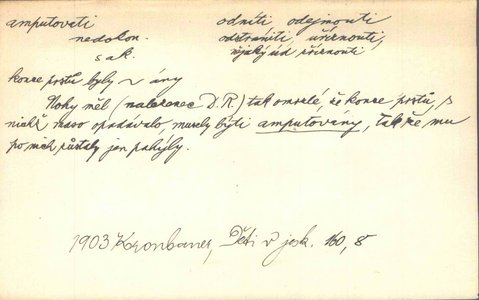 amputovati odníti, odejmouti
nedokon. odstraniti, uříznouti,
sak. nějaký úd uříznouti
konce prstů byly ~ ány
Nohy měl (nalezenec D. R.) tak omrzlé, že konce prstů, s
nichž maso opadávalo, musely býti amputovány, takže mu
po nich zůstaly jen pahýly.
1903 Kronbauer, Děti v jesk. 160, 8